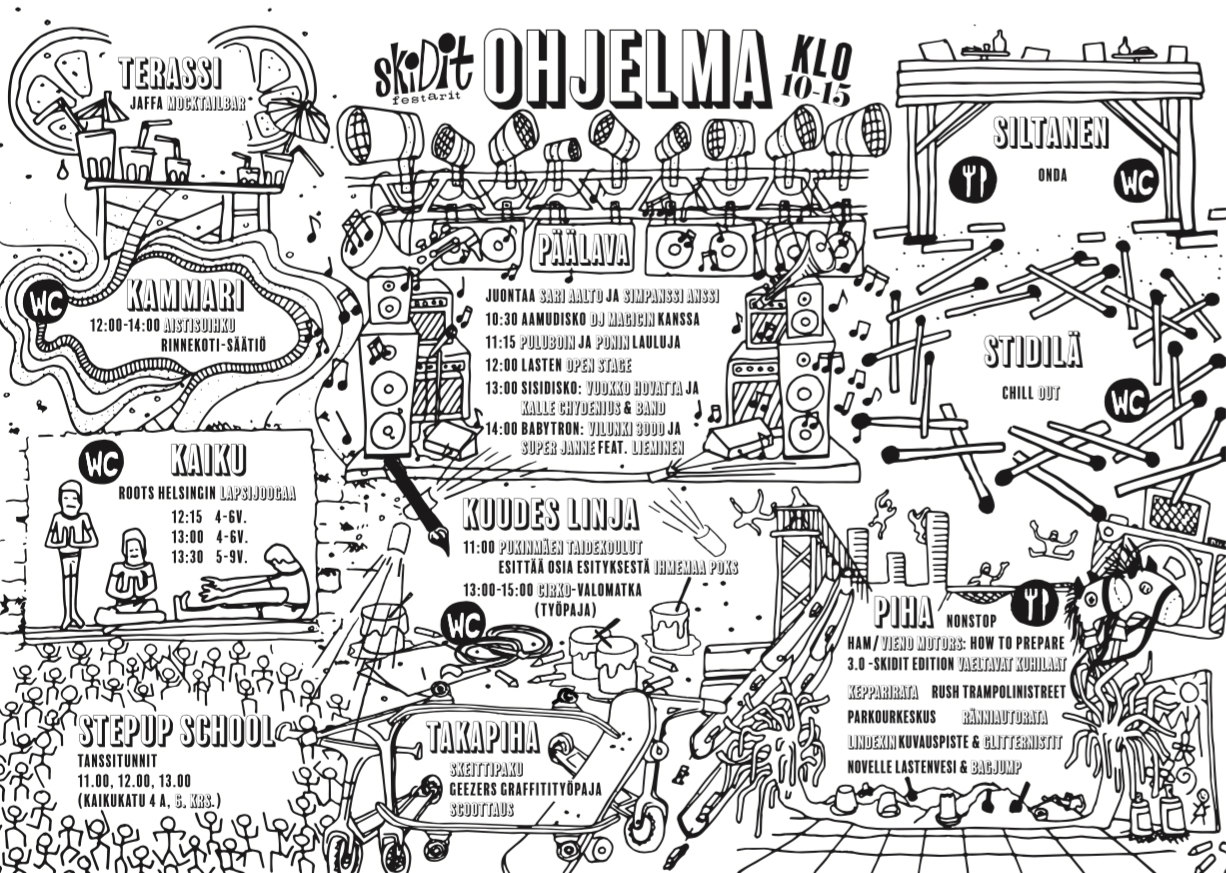 skidit
festarit
OHJELMA
KLO
10-15
TERASSI
JAFFA MOCKTAILBAR
SILTANEN
ONDA
WC
KAMMARI
WC
12:00-14:00 AISTISUIHKU
RINNEKOTI-SÄÄTIÖ
PÄÄLAVA
JUONTAA SARI AALTO JA SIMPANSSI ANSSI
10:30 AAMUDISKO DJ MAGICIN KANSSA
11:15 PULUBOIN JA PONIN LAULUJA
12:00 LASTEN OPEN STAGE
13:00 SISIDISKO: VUOKKO HOVATTA JA
KALLE CHYDENIUS & BAND
14:00 BABYTRON: VILUNKI 3000 JA
SUPER JANNE FEAT. LIEMINEN
STIDILÄ
CHILL OUT
WC
WC
KAIKU
ROOTS HELSINGIN LAPSIJOOGAA
12:15 4-6V.
13:00 4-6V.
13:30 5-9V.
KUUDES LINJA
11:00 PUKINMÄEN TAIDEKOULUT
ESITTÄÄ OSIA ESITYKSESTÄ IHMEMAA POKS
13:00-15:00 CIRKO-VALOMATKA
(TYÖPAJA)
WC
PIHA NONSTOP
HAM/VIENO MOTORS: HOW TO PREPARE
3.0 -SKIDIT EDITION VAELTAVAT KUHILAAT
KEPPARIRATA RUSH TRAMPOLINISTREET
PARKOURKESKUS RÄNNIAUTORATA
LINDEXIN KUVAUSPISTE & GLITTERNISTIT
NOVELLE LASTENVESI & BAGJUMP
STEPUP SCHOOL
TANSSITUNNIT
11.00, 12.00, 13.00
(KAIKUKATU 4 A, 6. KRS.)
TAKAPIHA
SKEITTIPAKU
GEEZERS GRAFFITITYÖPAJA
SCOOTTAUS